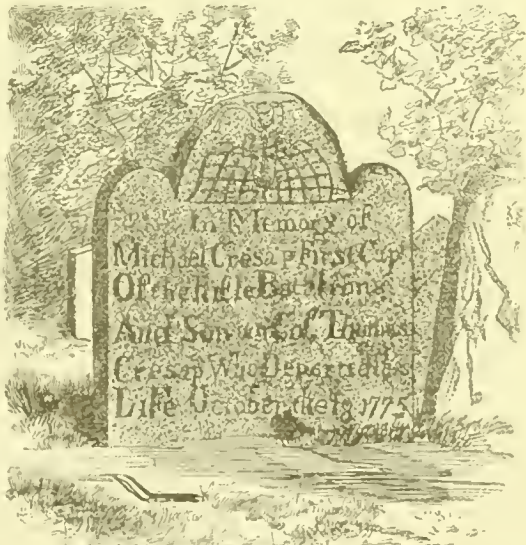 In Memory of
Michael Cresap First Cap
Of the Rifle Batalions
And Son un Col. Thomas
Cresap Who Departed this
Life October the 18 1775